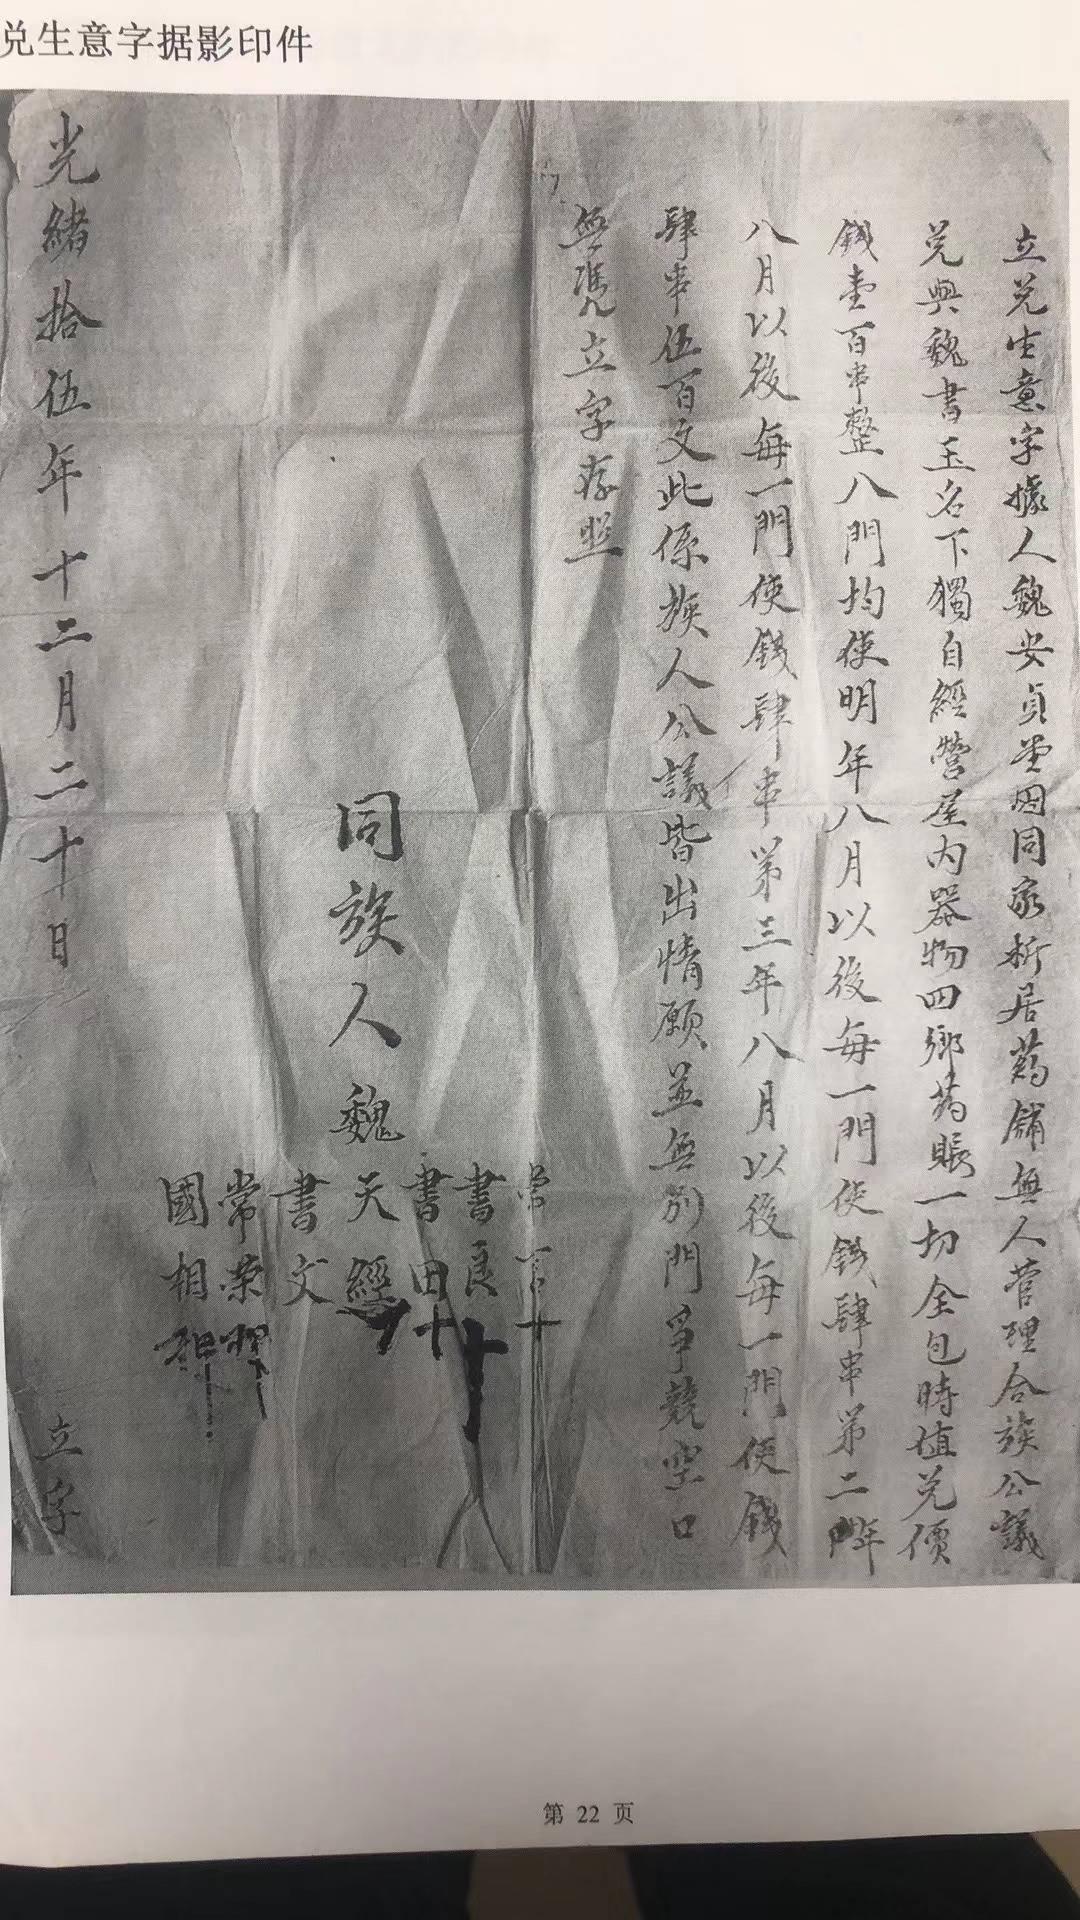 兑生意字据影印件
立兑生意字據人魏安貞堂因同家析居藥舖無人管理合族公議
兑與魏書玉名下獨自經營屋内器物四鄉药賬一切全包時值兑價
錢壹百串整八門均使明年八月以後每一門使錢肆串第二年
八月以後每一門使錢肆串第三年八月以後每一門使錢
肆串伍百文此係族人公議皆出情願並無别門爭競空口
無凴立字存照
同族人魏
常言十
書良十
書田十
天經
書文
常荣押
國相押
光緒拾伍年十二月二十日 立字
第 22 页